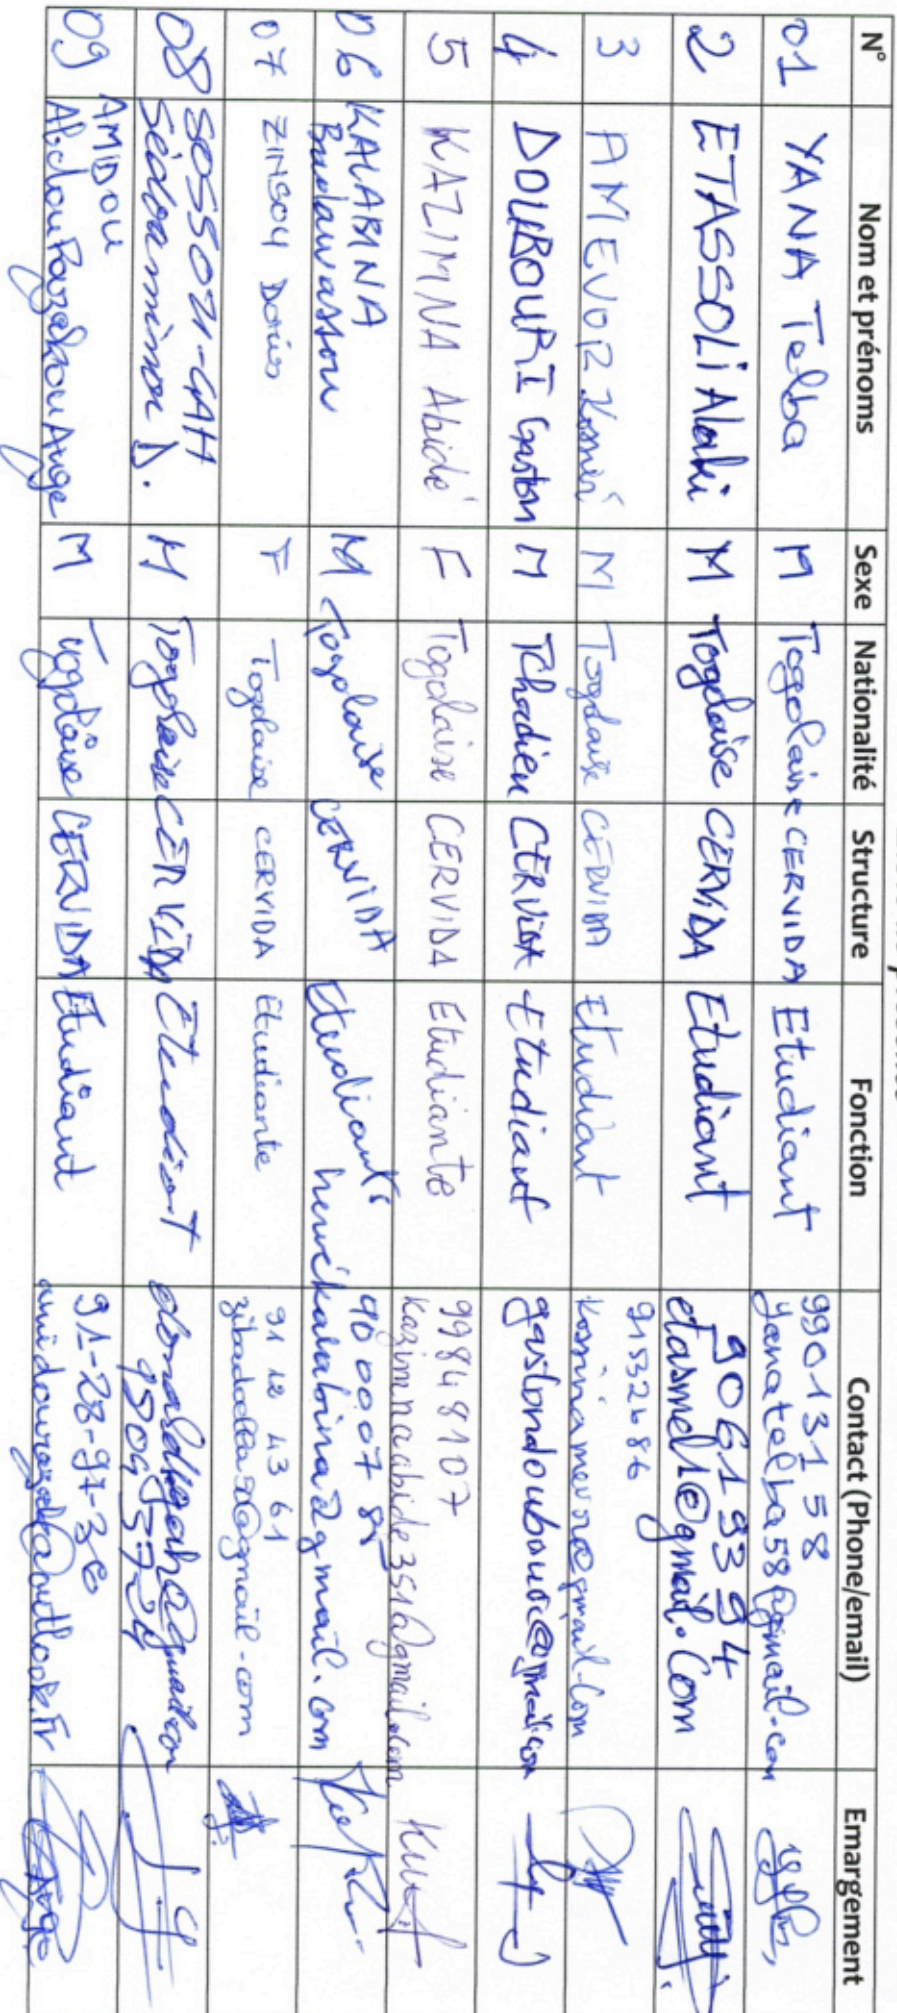 N° Nom et prénoms Sexe Nationalité Structure Fonction Contact (Phone/email) Emargement
01 YANA Telba M Togolaise CERVIDA Etudiant 99013158
yanatelba58@gmail.com
2 ETASSOLI Alaki M Togolaise CERVIDA Etudiant 90619394
etasmel1@gmail.com
3 AMEVOR M Togolaise CERVIDA Etudiant 91532686
kosminamevor@gmail.com
4 DOUBOURI Gaston M Tchadien CERVIDA Etudiant gastondoubouri@gmail.com
5 KAZIMNA Abidé F Togolaise CERVIDA Etudiante 99848107
kazimnaabide351@gmail.com
06 KALABINA M Togolaise CERVIDA Etudiant 90 00 07 85
hervekalabina2gmail.com
07 ZINSOU Dorios F Togolaise CERVIDA Etudiante 91 12 43 61
08 SOSSOU-GAH M Togolaise CERVIDA Etudiant
D.
09 AMIDOU M Togolaise CERVIDA Etudiant 91-28-97-36
Abdou Ange